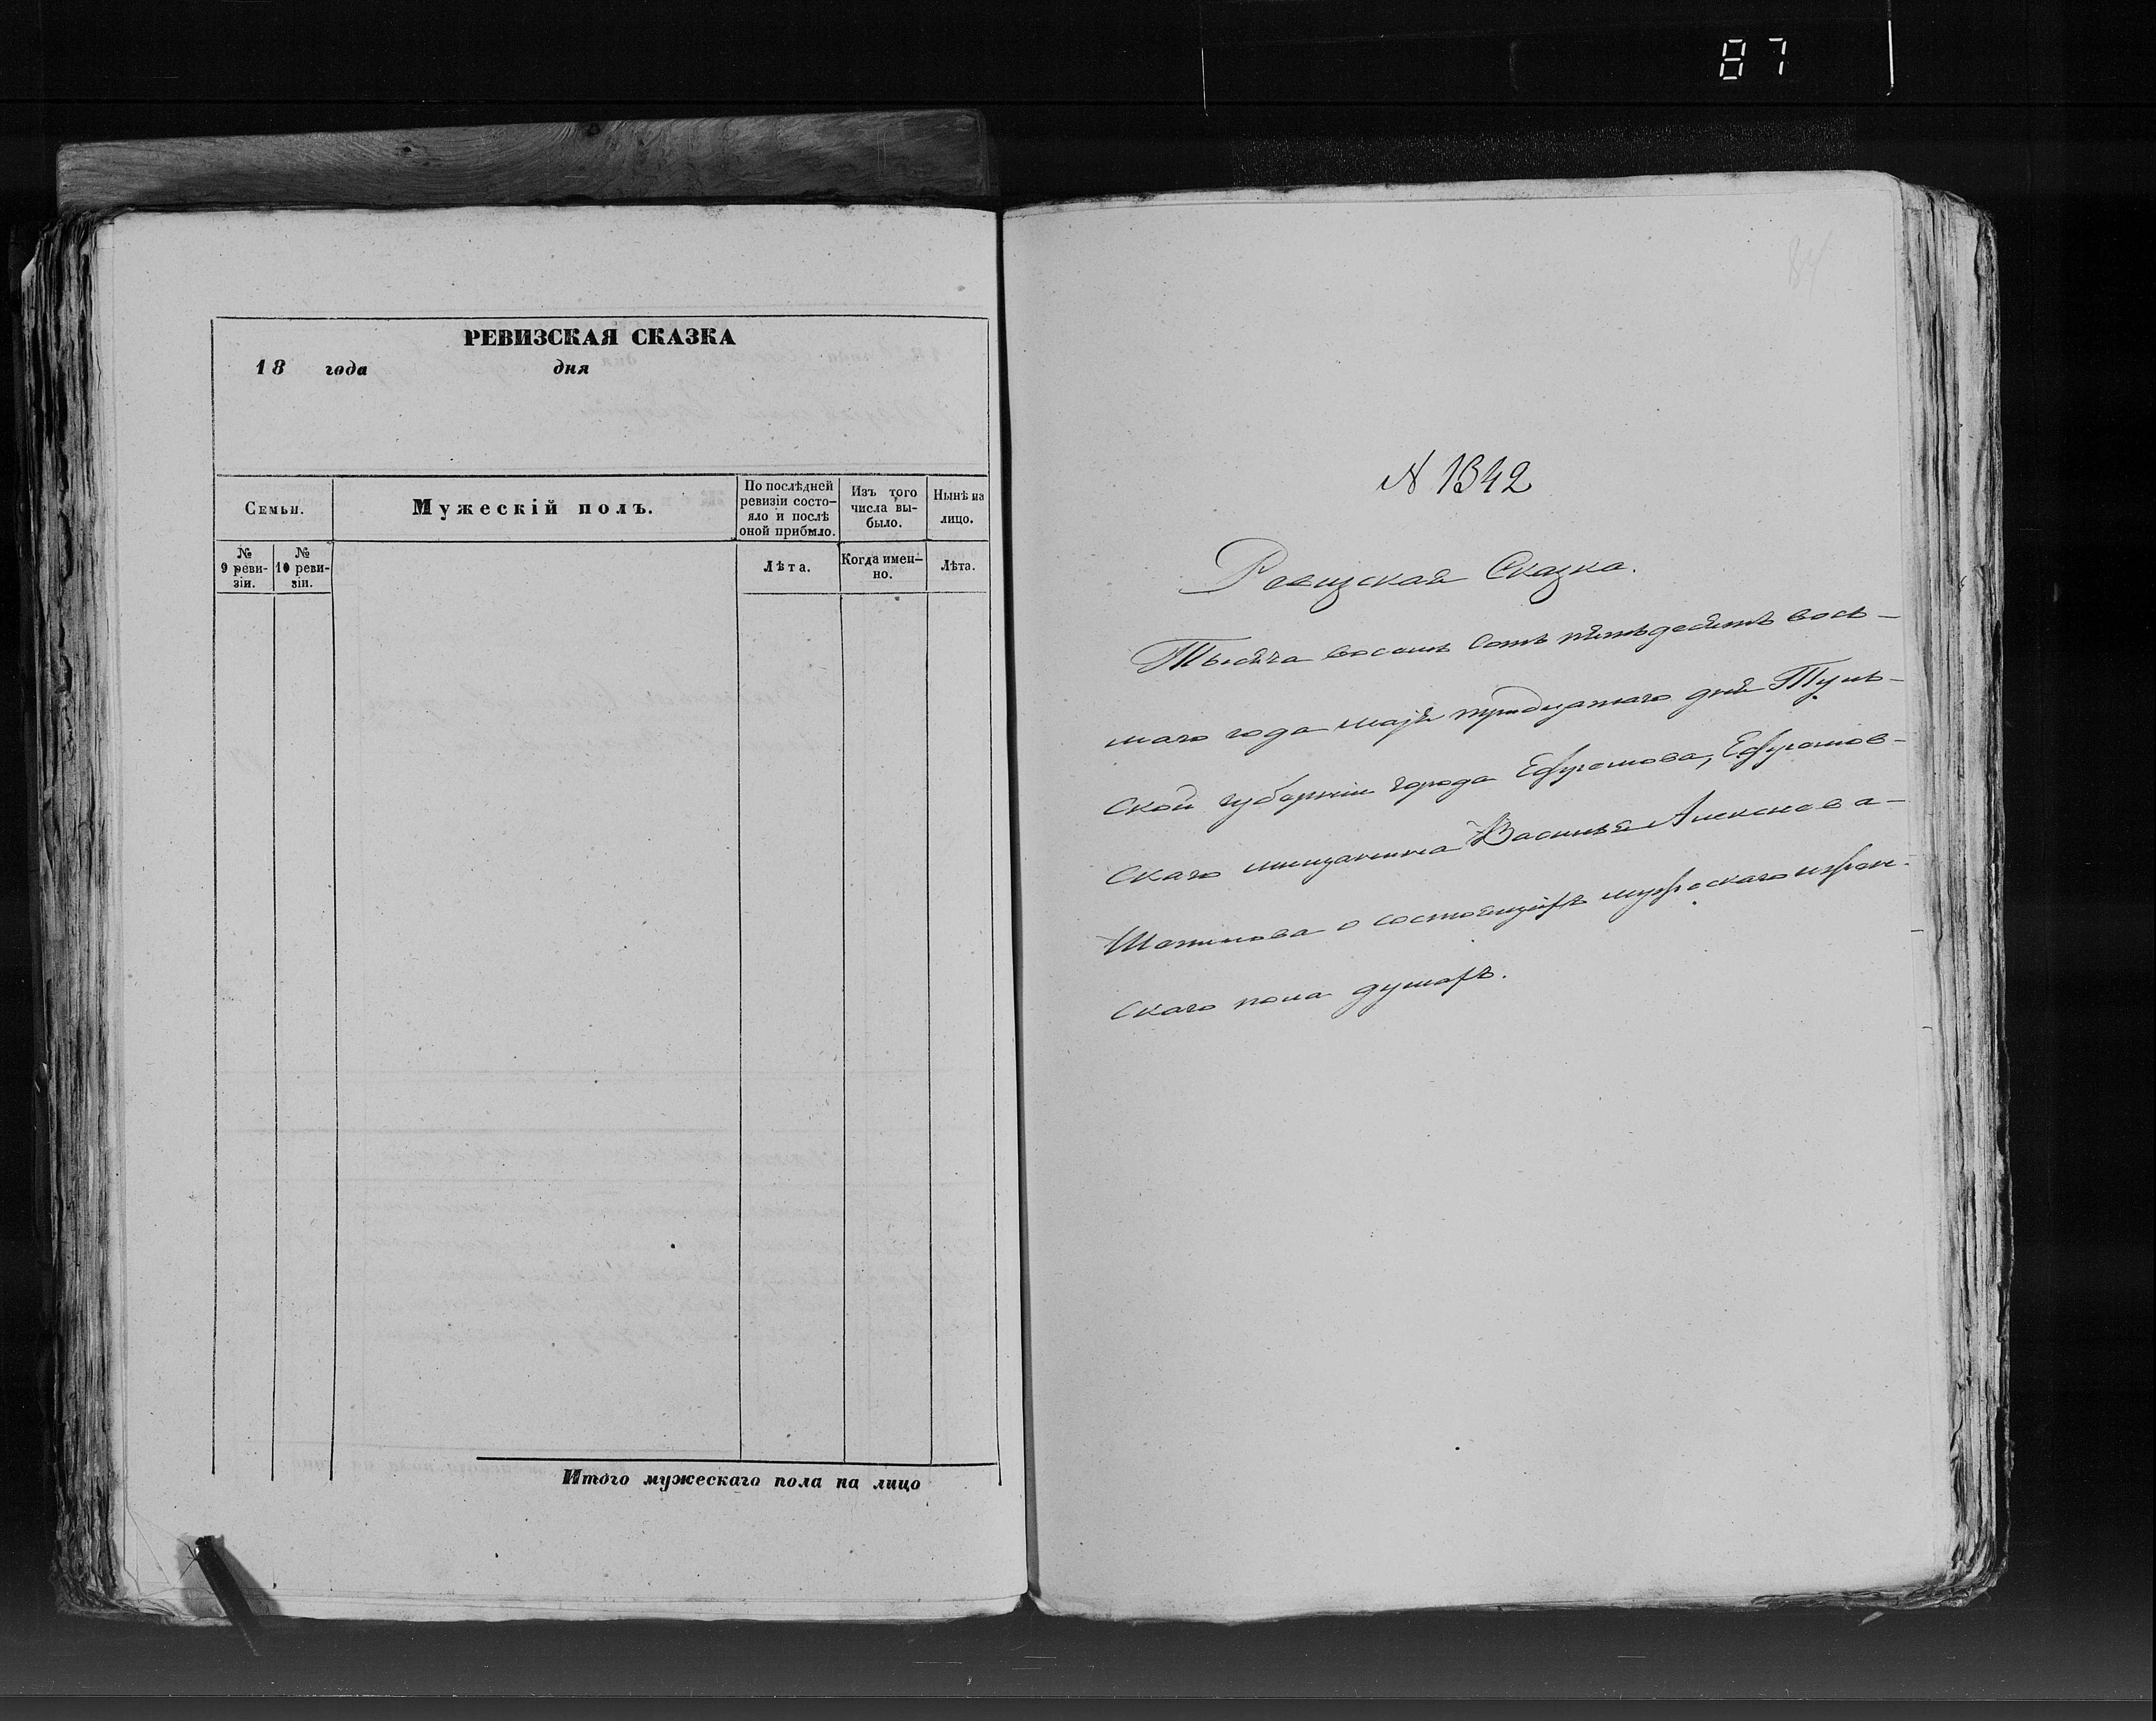 87
РЕВИЗСКАЯ СКАЗКА
18 года дня
Семьи.
Мужескій полъ.
По послѣдней
ревизіи состо-
яло и послѣ
оной прибыло.
Изъ того
числа вы-
было.
Нынѣ на
лицо.
№
9 реви-
зіи.
№
10 реви-
зіи.
Лѣта.
Когда имен-
но.
Лѣта.
Итого мужескаго пола на лицо
84
№ 1342
Ревизская Сказка.
Тысяча восемь сотъ пятьдесятъ вось-
маго года маія тридцатаго дня Туль-
ской губерніи города Ефремова, Ефремов-
скаго мещанина Василья Алексѣева
о состоящихъ мужескаго и жен-
скаго пола душахъ.